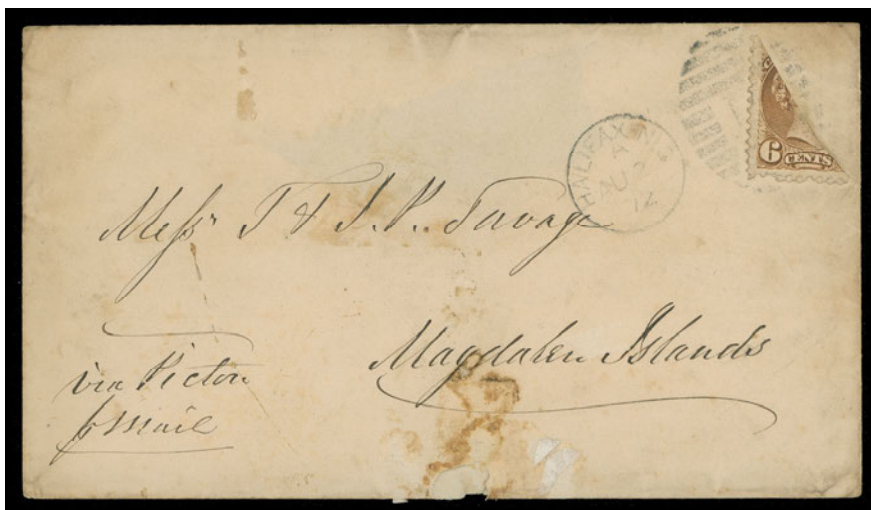 HALIFAX N.S
A
AU 2
72
6
Messrs T & J. P. Savage
Magdalen Islands
via Pictou
p Mail